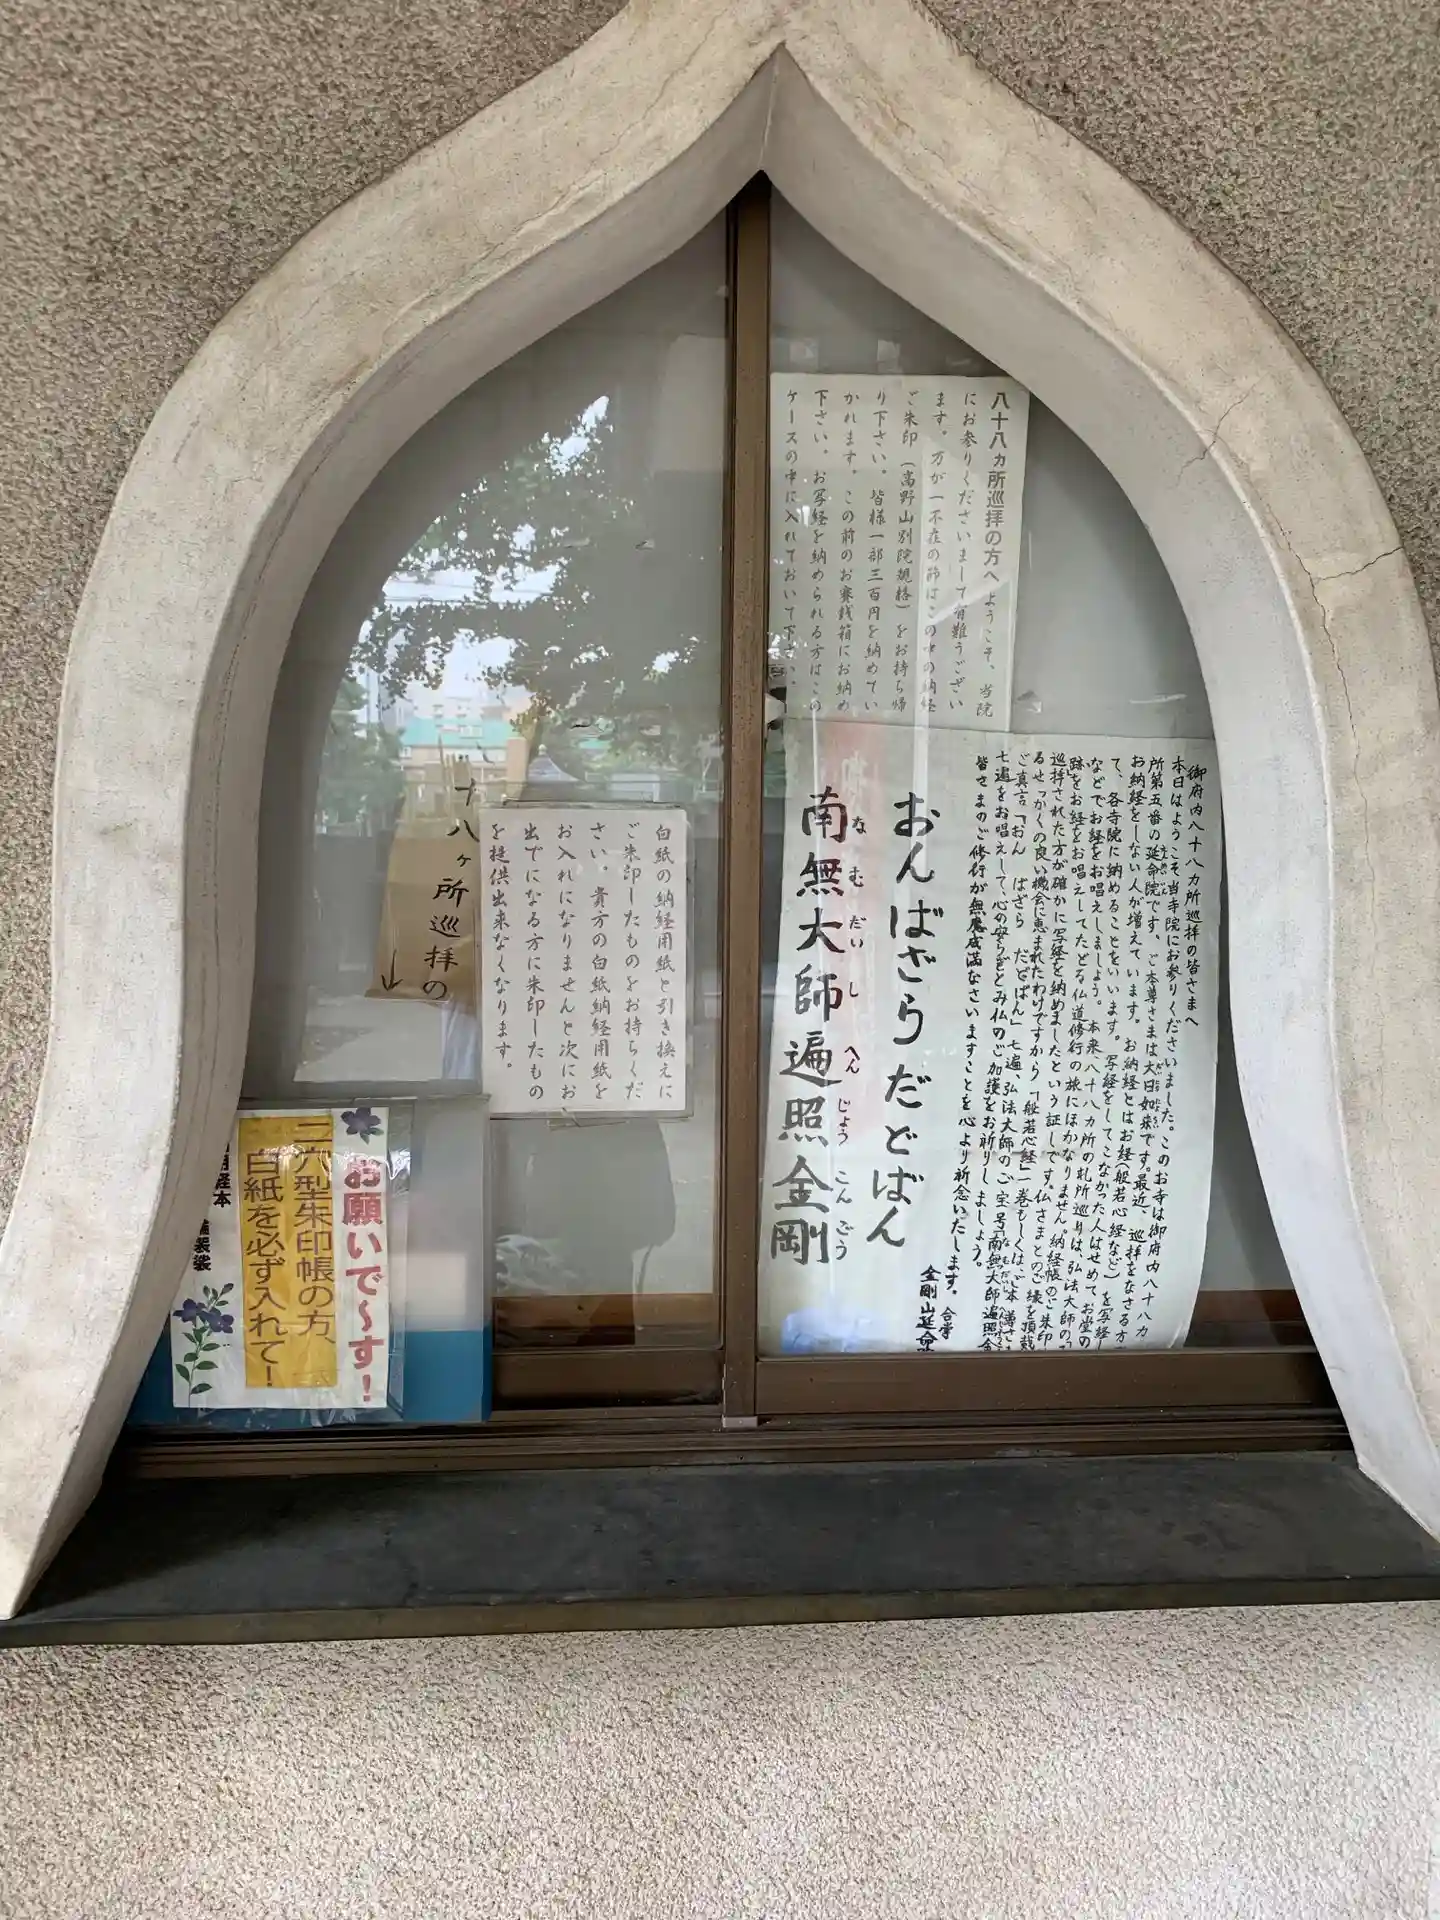 八十八ヵ所巡拝の方へ ようこそ、当院
にお参りくださいまして有難うござい
ます。万が一不在の節はこの中の納経
ご朱印（高野山別院規格）をお持ち帰
り下さい。皆様一部三百円を納めてい
かれます。この前のお賽銭箱にお納め
下さい。お写経を納められる方はこの
ケースの中に入れておいて下さい。
御府内八十八カ所巡拝の皆さまへ
本日はようこそ当寺院にお参りくださいました。このお寺は御府内八十八カ
所第五番の延命院です。ご本尊さまは大日如来です。最近、巡拝をなさる方
お納経をしない人が増えています。お納経とはお経(般若心経など)を写経し
て、各寺院に納めることをいいます。写経をしてこなかった人はせめてお堂の
などでお経をお唱えしましょう。本来、八十八カ所の札所巡りは、弘法大師の
跡をお経をお唱えしてたどる仏道修行の旅にほかなりません。納経帳のご朱印
巡拝された方が確かに写経を納めましたという証しです。仏さまとのご縁を頂戴
るせっかくの良い機会に恵まれたわけですから「般若心経」一巻もしくは、ご本尊さ
ご真言「おん ばざら だどばん」七遍、弘法大師のご宝号「南無大師遍照金
七遍をお唱えして、心の安らぎとみ仏のご加護をお祈りしましょう。
皆さまのご修行が無魔成満なさいますことを心より祈念いたします。合掌
金剛山延命
おんばざらだどばん
南無大師遍照金剛
なむだいしへんじょうこんごう
白紙の納経用紙と引き換えに
ご朱印したものをお持ちくだ
さい。貴方の白紙納経用紙を
お入れになりませんと次にお
出でになる方に朱印したもの
を提供出来なくなります。
十八ヶ所巡拝の
↓
お願いで〜す！
二穴型朱印帳の方、
白紙を必ず入れて！